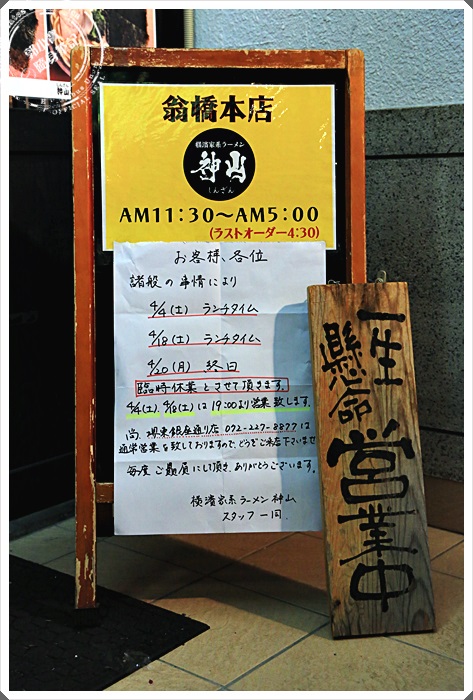 翁橋本店
横濱家系ラーメン
神山
しんざん
AM11:30〜AM5:00
(ラストオーダー4:30)
お客様、各位
諸般の事情により
4/4(土) ランチタイム
4/18(土) ランチタイム
4/20(月) 終日
臨時休業とさせて頂きます。
4/4(土)、4/18(土)は19:00より営業致します。
尚、堺東銀座通り店 072-227-8877は
通常営業を致しておりますので、どうぞご来店下さいませ
毎度ご贔屓にして頂き、ありがとうございます。
横濱家系ラーメン神山
スタッフ一同
一生
懸命
営業中
神山